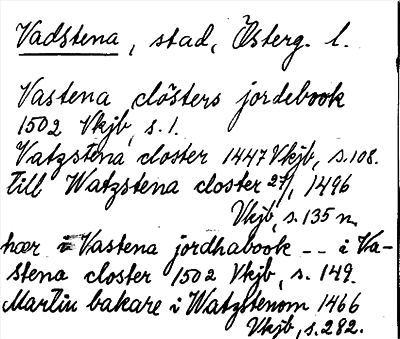 Vadstena, stad, Österg. l.
Vastena clösters jordebook
1502 Vkjb, s. 1.
Vatzstena closter 1447 Vkjb, s. 108.
till Watzstena closter 27/1 1496
Vkjb, s. 135 n.
hær i Vastena jordhabook -- i Va-
stena closter 1502 Vkjb, s. 149.
Martin bakare i Watzstenom 1466
Vkjb, s. 282.